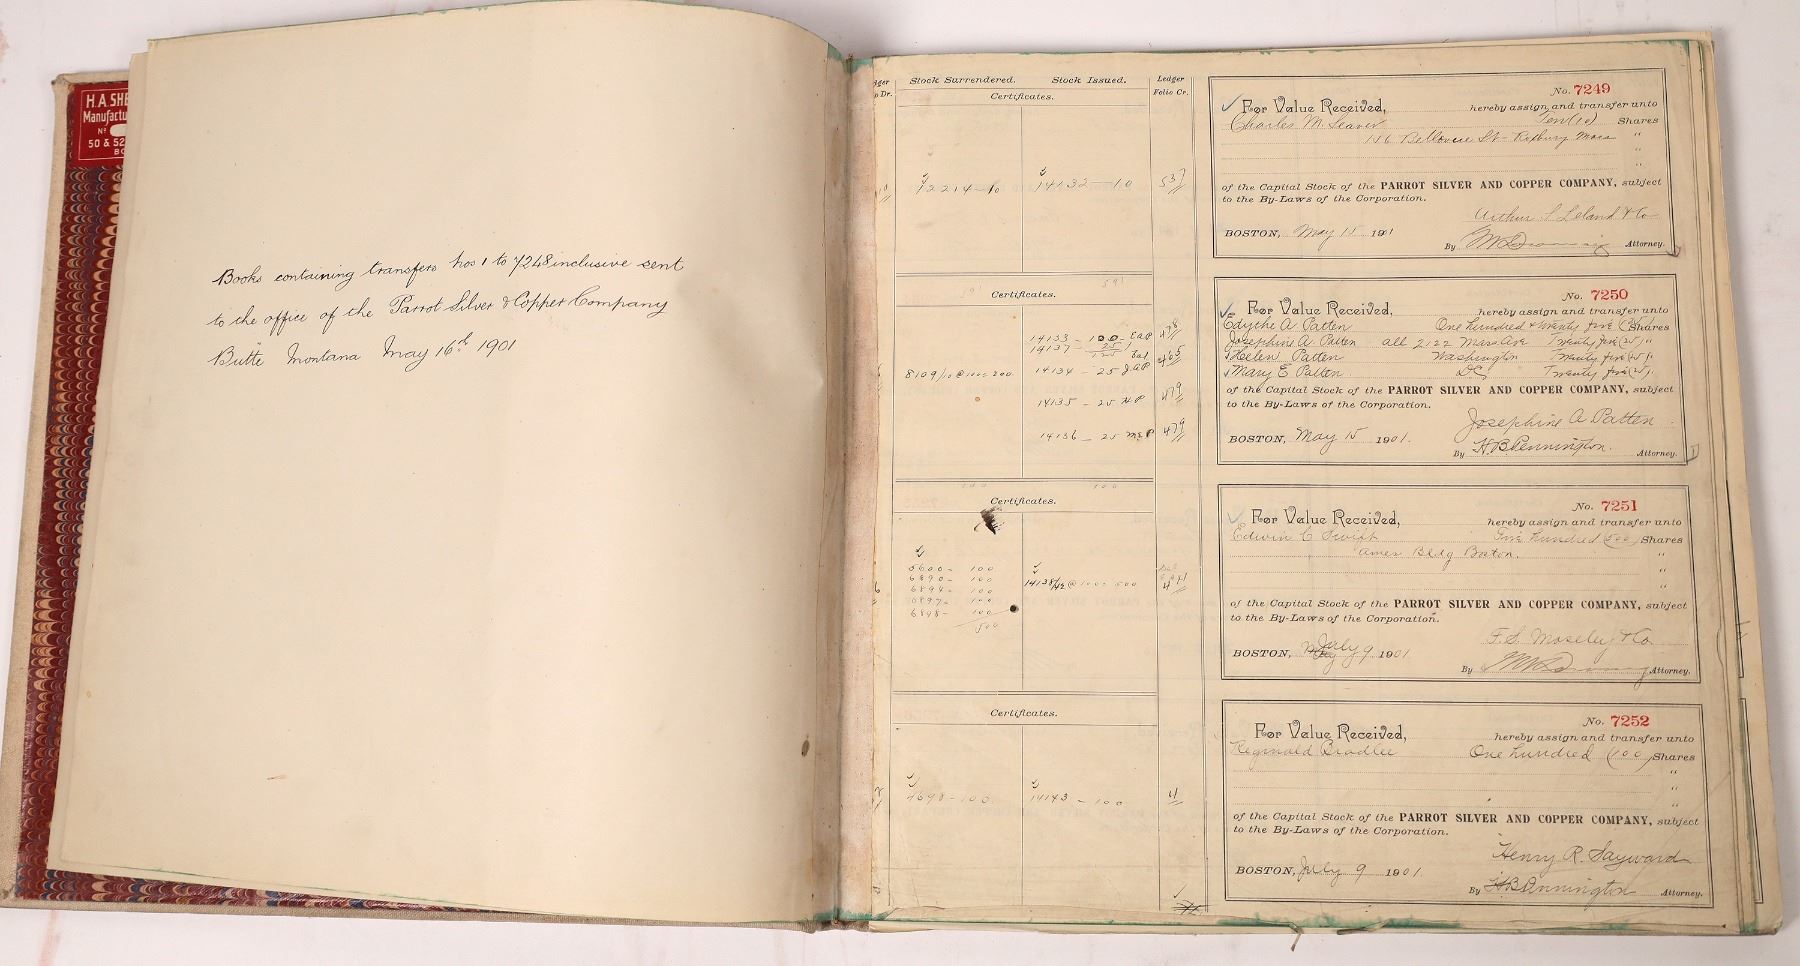 H.A. SHE
Manufactur
No
50 & 52
BO
Books containing transfers nos 1 to 7248 inclusive sent
to the office of the Parrot Silver & Copper Company
Butte Montana May 16th 1901
Stock Surrendered. Stock Issued. Ledger
Dr. Certificates. Folio Cr.
14132 - 10 537
Certificates.
14133 - 100 - EAP 478
14137 - 25
125 Bal 465
8109/10 @ 100 = 200 14134 - 25 JAP
14135 - 25 HP 479
14136 - 25 MEP 479
Certificates.
6890 - 100
6894 - 100
6897 - 100 14138/42 @ 100 = 500
6898 - 100
500
Certificates.
4698 - 100 14143 - 100 4
No. 7249
For Value Received, hereby assign and transfer unto
Charles M. Seaver Ten (10) Shares
146 Bellevue St - Roxbury Mass "
"
of the Capital Stock of the PARROT SILVER AND COPPER COMPANY, subject
to the By-Laws of the Corporation.
Arthur S Leland & Co
BOSTON, May 15 1901
By Attorney.
No. 7250
For Value Received, hereby assign and transfer unto
Edythe A. Patten One hundred & twenty five (125) Shares
Josephine A. Patten all 2122 Mass Ave Twenty five (25) "
Helen Patten Washington Twenty five (25) "
Mary E. Patten DC Twenty five (25) "
of the Capital Stock of the PARROT SILVER AND COPPER COMPANY, subject
to the By-Laws of the Corporation.
Josephine A Patten
BOSTON, May 15 1901.
By H.B. Pennington. Attorney.
No. 7251
For Value Received, hereby assign and transfer unto
Edwin C Swift Five hundred (500) Shares
Ames Bldg Boston. "
"
"
of the Capital Stock of the PARROT SILVER AND COPPER COMPANY, subject
to the By-Laws of the Corporation.
F. S. Moseley & Co
BOSTON, May July 9 1901.
By Attorney.
No. 7252
For Value Received, hereby assign and transfer unto
Reginald Bradlee One hundred (100) Shares
"
"
"
of the Capital Stock of the PARROT SILVER AND COPPER COMPANY, subject
to the By-Laws of the Corporation.
Henry R. Sayward
BOSTON, July 9 1901
By H.B. Pennington Attorney.